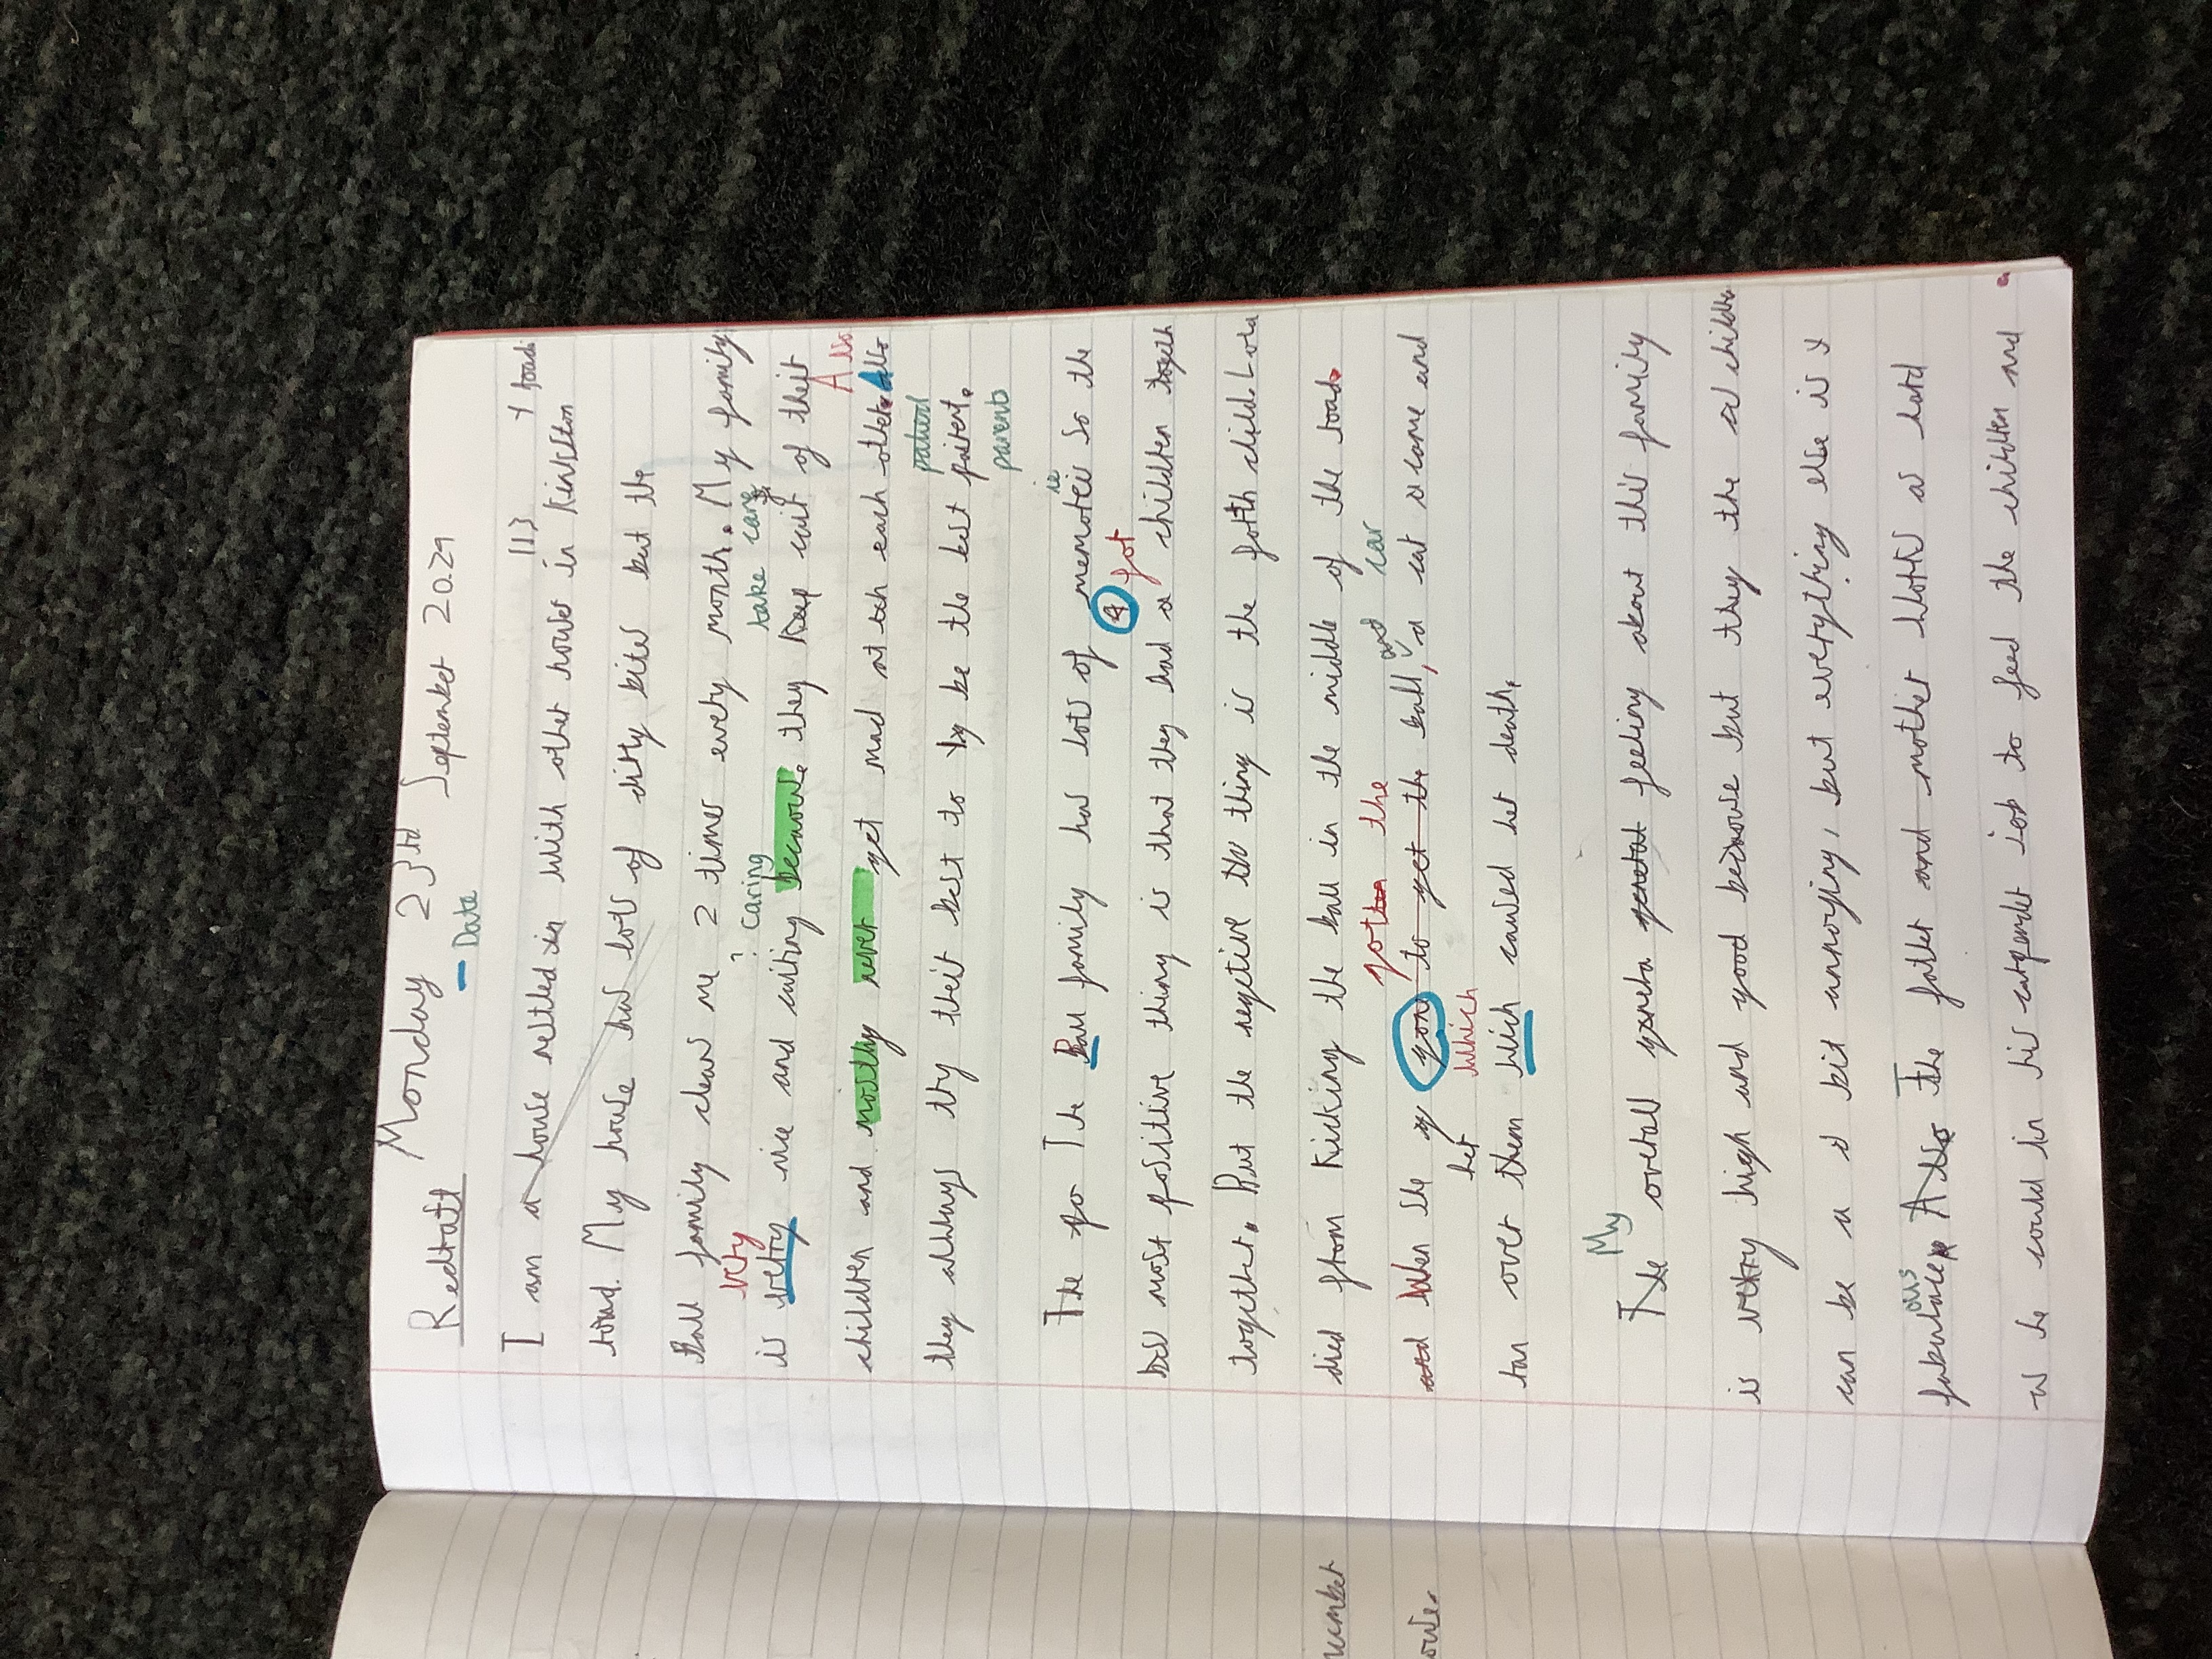 Monday 23rd September 2024
Redraft
Date
I am a house nestled in with other houses in Kingston
road. My house has lots of dirty bites but the
Ball family clean me 2 times every month. My family
very ? caring take care
is vetry nice and cariring because they keep cair of their
Also
children and mostly never get mad at ech each other. Also
patient
they always try their best to be the best pairent.
parents
ie
The Ball family has lots of memoreis so the
4 for
most positive thing is that they had a children togeth
together. But the negetive thing is the forth child Lola
died from kicking the ball in the middle of the road.
got the and car
When she to get the ball, a cat a came and
her which
ran over them wich caused her death.
My
The overall feeling about this family
is very high and good because but they the children
can be a bit annoying, but everything else is
ous
The father and mother works a hard
as he could in his carpenter job to feed the children and
number